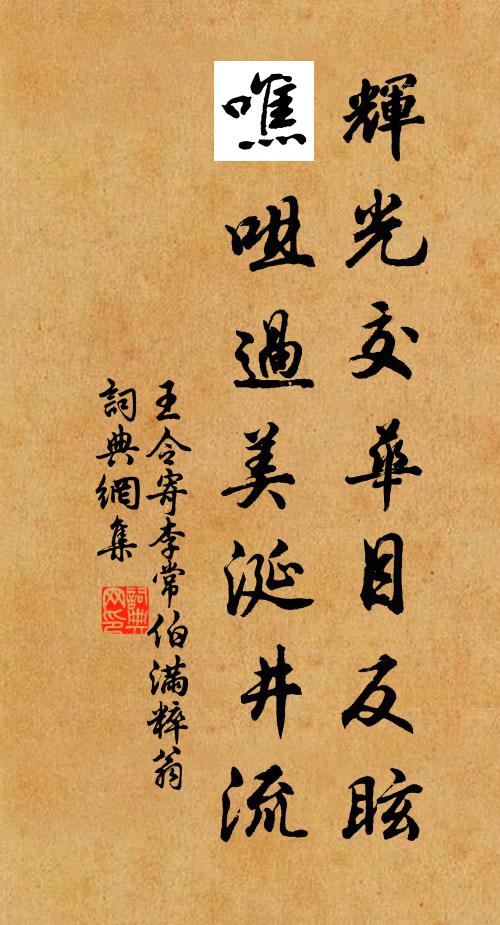 輝光交華目反眩
噍咀過美涎井流
王令寄李常伯滿粹翁
詞典網集
詞典网印